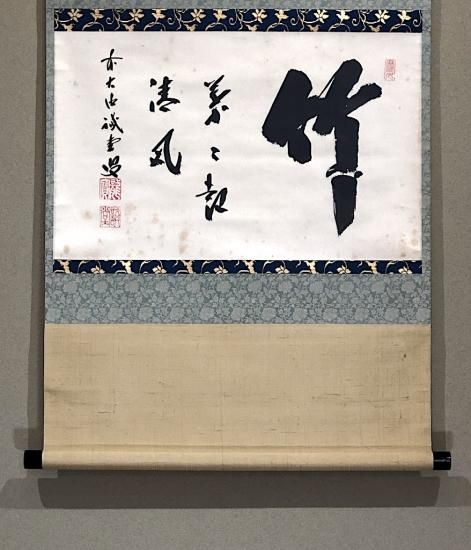 竹
葉々起
清風
前大徳誠堂